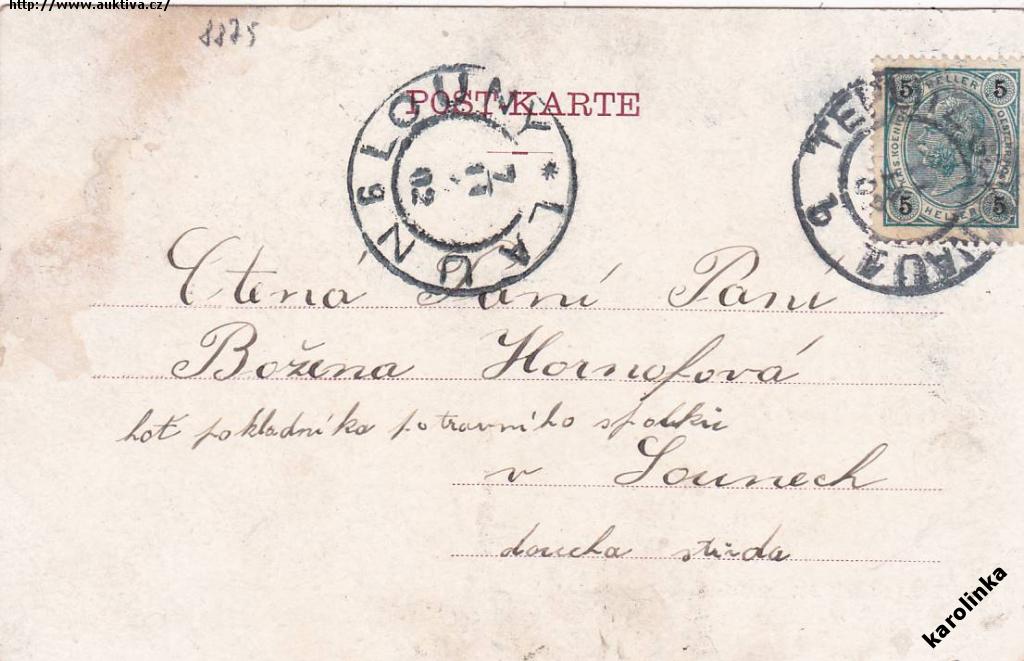 http://www.auktiva.cz/
8875
POST-KARTE
LOUNY * LAUN
7/11
02
5 HELLER 5
5 HELLER 5
Ctěná Paní Paní
Božena Hornofová
hoť pokladníka potravního spolku
v Lounech
karolinka